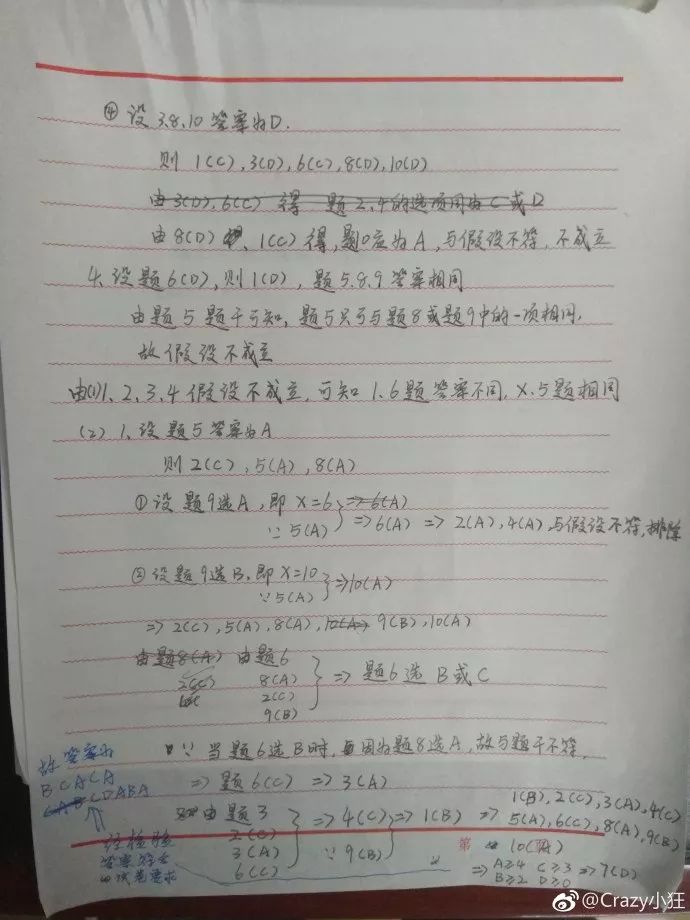 ④设3.8.10答案为D.
则 1(C),3(D),6(C),8(D),10(D)
由3(D),6(C) 得 题2.4的选项同为C或D
由8(D) 1(C)得,题10应为A,与假设不符,不成立
4.设题6(D),则1(D),题5.8.9答案相同
由题5题干可知,题5只可与题8或题9中的一项相同.
故假设不成立
由(1)1、2、3、4假设不成立,可知1.6题答案不同,X.5题相同
(2) 1.设题5答案为A
则2(C),5(A),8(A)
①设题9选A,即X=6 } ⇒6(A)
∵5(A) } ⇒6(A) ⇒ 2(A),4(A),与假设不符,排除
②设题9选B,即X=10 } ⇒10(A)
∵5(A)
⇒2(C),5(A),8(A),10(A) 9(B),10(A)
由题8(A) 由题6
2(C) 8(A)
2(C) } ⇒ 题6选B或C
9(B)
∵当题6选B时,因为题8选A,故与题干不符,
⇒ 题6(C) ⇒3(A)
由题3
2(C)
3(A)
6(C) } ⇒4(C) ∵9(B) } ⇒1(B) ⇒ 1(B),2(C),3(A),4(C)
5(A),6(C),8(A),9(B)
第 10(A)
⇒ A≥4 C≥3 ⇒7(D)
B≥2 D≥0
故答案为
BCACA
CAB CDABA
经检验
答案符合
试卷要求
@Crazy小狂